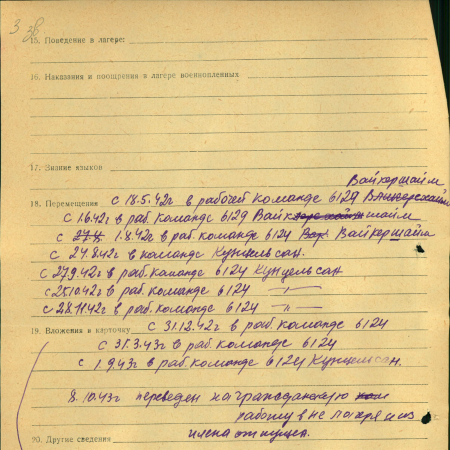 3
15. Поведение в лагере:
16. Наказания и поощрения в лагере военнопленных
17. Знание языков
Вайкершайм
18. Перемещение с 18.5.42г в рабочей команде 6124
с 1.6.42г в раб. команде 6129 Вайк шайм
с 1.8.42г в раб. команде 6124 Вайкершайм
с 24.8.42г в команде Кунцельсан.
с 27.9.42г в раб. команде 6124 Кунцельсан
с 25.10.42г в раб. команде 6124 —"—
с 28.11.42г в раб. команде 6124 —"—
19. Вложения в карточку с 31.12.42г в раб. команде 6124
с 31.3.43г в раб. команде 6124
с 1.9.43г в раб. команде 6124 Кунцельсан.
8.10.43г переведен на гражданскую
работу вне лагеря и из
плена отпущен.
20. Другие сведения